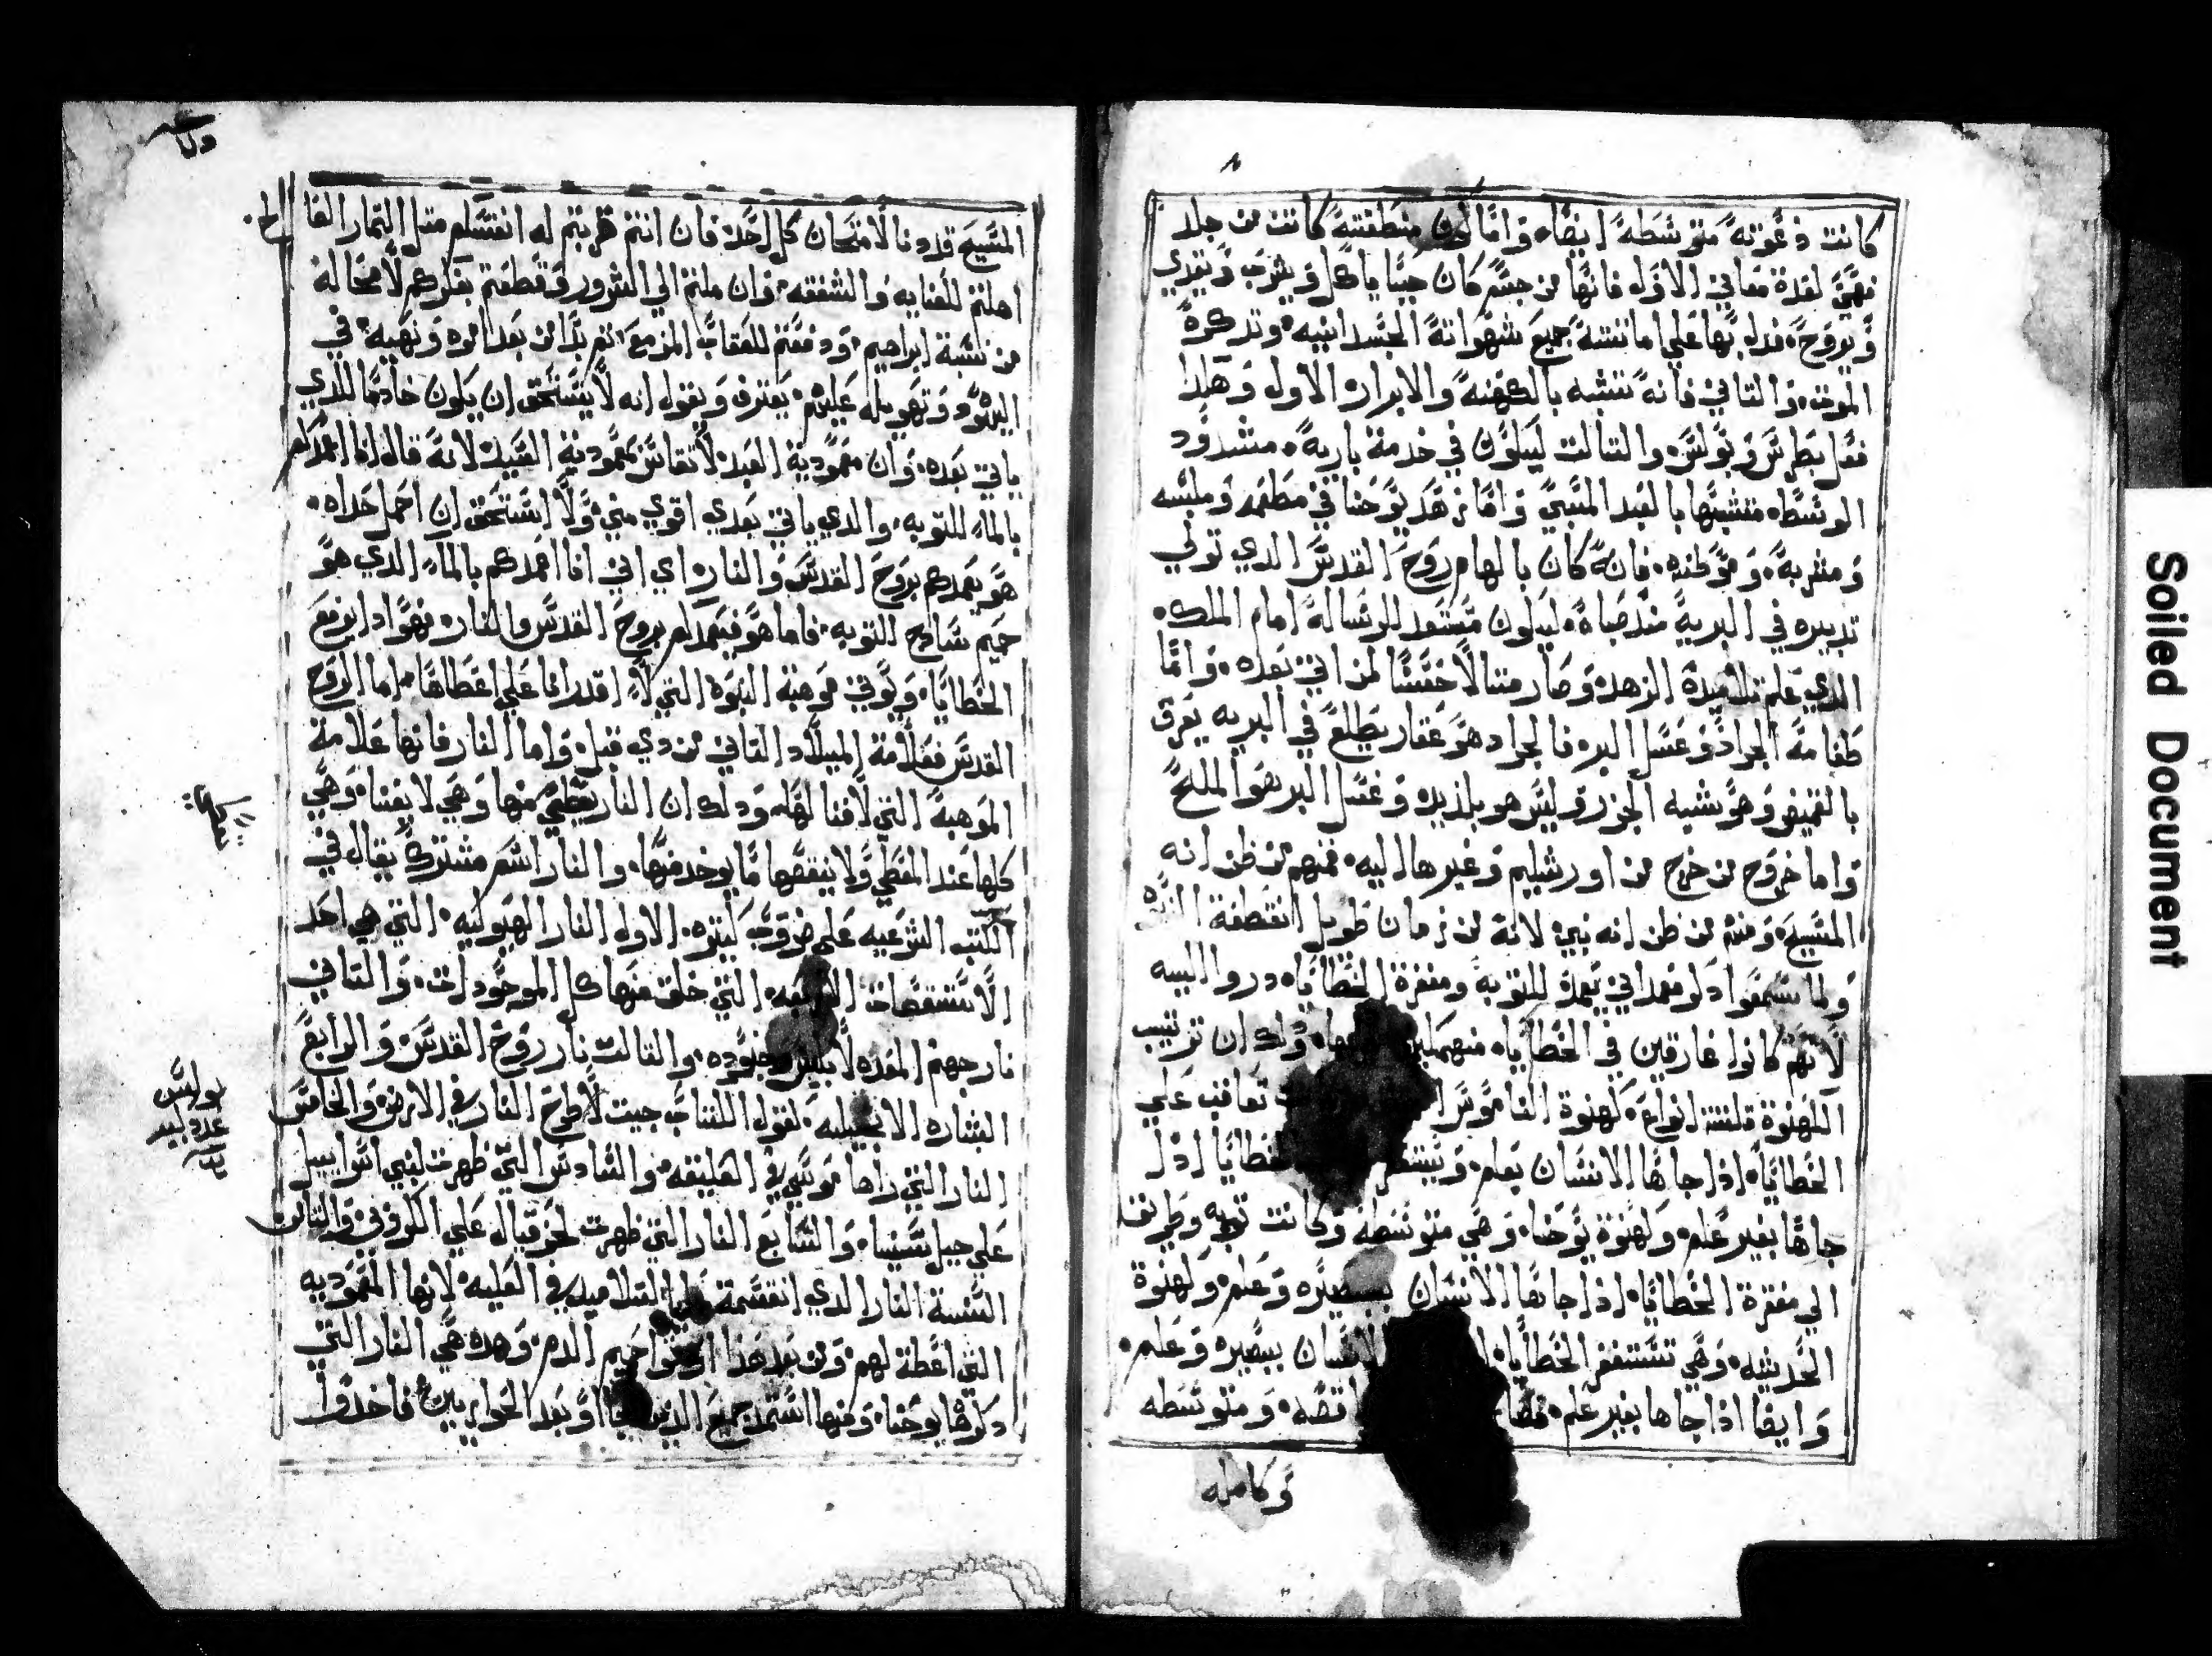 كانت دعوته متوسطه ايضا، واما كون منطقته كانت من جلد
فهي لعدة معاني الاول فانها من جسم كان حيا ياكل ويشرب ويتغدي
ويروح، فدل بها علي اماتته جميع شهواته الجسدانيه، وتدكرة
الموت، والتاني فانه تشبه بالكهنه والابرار الاول وهكدا
فعل بطرس وبولس، والتالت ليكون في خدمة باريه، مشدود
الوسط، متشبها بالعبد المتهيي واما زهد يوحنا في مطعمه وملبسه
ومشربه، وموطنه، فانه كان بالهام روح القدس الدي تولي
تدبيره في البرية مند صباه، ليكون مستعد للرساله امام الملك،
الدي علم تلاميده الزهد، وصار متالا حسنا لمن اتي بعده، واما
طعامه الجراد وعسل البر، فالجراد هو عقار يطلع في البريه يعرف
بالقميض وهو يشبه الجزر وليس هو بلديد، وعسل البر هو المالح
واما خروج من خرج من اورشليم وغيرها اليه، فمنهم من ظن انه
المسيح، ومنهم من ظن انه نبي لانه من زمان طويل انقطعة النبوه
ولما سمعوا دكر معمداني يعمد للتوبة ومغفرة الخطايا، دروا اليه
لانهم كانوا غارقين في الخطايا، منهمكين ودلك ان ترتيب
الكهنوة تلته انواع، كهنوة الناموس تعاقب علي
الخطايا، ادا جاها الانسان بعلم، وتستغفر الخطايا ادا
جاها بغير علم، وكهنوة يوحنا، وهي متوسطه وكانت توبه وطريقا
الي مغفرة الخطايا، ادا جاها الانسان ببصيره وعلم، وكهنوة
الحديثه، وهي تستغفر الخطايا، الانسان ببصيره وعلم،
وايضا ادا جاها بغير علم، ناقصه، ومتوسطه
وكامله
المسيح قد دنا لامتحان كل احد، فان انتم قربتم له انفسكم متل التمار الفا
اهلتم للعنايه والشفقه، وان ملتم الي الشرور وقطعتم بفكركم لا محالة
من نسبة ابراهيم، ودفعتم للعقاب المزمع، تم بدا من بعد امره ونهيه، في
اليهود وتهويله عليهم، يعترف ويقول انه لا يستحق ان يكون خادما للدي
ياتي بعده، وان معمودية العبد لا تقاس بمعمودية السيد لانه قال انا اعمدكم
بالماء للتوبه، والدي ياتي بعدي اقوي مني، ولا استحق ان احمل حداه،
هو يعمدكم بروح القدس والنار، اي اني انا اعمدكم بالماء الدي هو
حميم سادج التوبه، فاما هو فيعمدكم بروح القدس والنار، فهو ادا يرفع
الخطايا، ويوتي موهبة البنوه التي لا اقدر انا علي اعطاها، اما الروح
القدس فعلامة الميلاد التاني من دي قبل، واما النار فانها علامة
الموهبة التي لا فنا لها، ودلك ان النار يعطي منها وهي لا يفنا، وهي
كلها عند المعطي ولا ينقصها ما يوخد منها، والنار اسم مشترك يقال في
الكتب الشرعيه علي ضروب كتيره، الاول النار الهيوليه، التي هي احد
الاستقصات الاربعه، التي خلق منها كل الموجودات، والتاني
نار جهنم المعده لابليس وجنوده، والتالت نار روح القدس، والرابع
البشاره الانجيليه، لقول الكتاب جيت لاطرح النار في الارض، والخامس
النار التي راها موسي في العليقه، والسادس التي ظهرت لنبي اسراييل
علي جبل سينا، والسابع النار التي ظهرت لحزقيال علي الكروبي، والتامن
السنة النار الدي انقسمة علي التلاميد في العليه، لانها المعموديه
التي اعطة لهم، ومن بعد هدا حميم الدم، وهده هي النار التي
دكرها يوحنا، ومنها استمد جميع الدين جاوا بعد الحواريين، فاخدوا
بولس